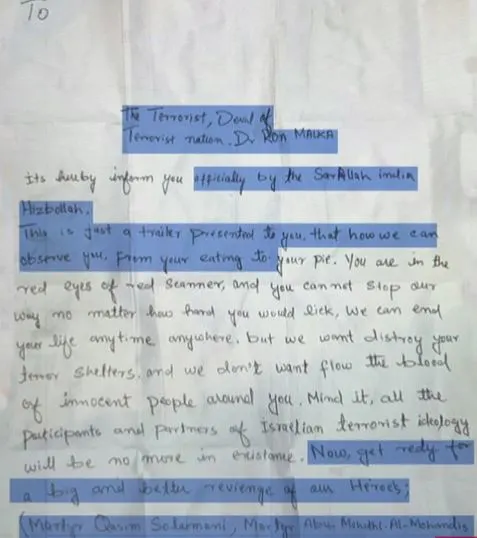 To
The Terrorist, Deval of
Terrorist nation. Dr Ron MALKA
Its heuby inform you officially by the SarAllah india
Hizbollah.
This is just a trailer presented to you, that how we can
observe you, From your eating to your pie. You are in the
red eyes of red scanner, and you can not stop our
way no matter how hard you would lick, We can end
your life anytime anywhere, but we want distroy your
terror shelters, and we don't want flow the blood
of innocent people around you. Mind it, all the
participants and partners of Israelian terrorist ideology
will be no more in existance. Now, get redy for
a big and better revienge of our Heroes;
(Martyr Qasim Solaemani, Martyr Abu Mahdhi-Al-Mohandis